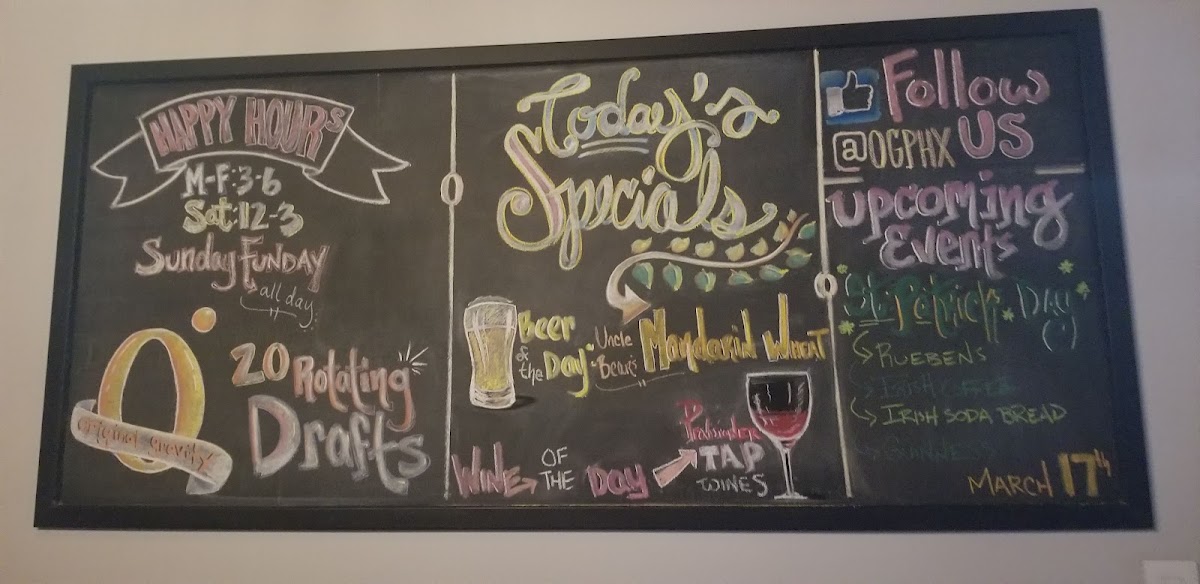 HAPPY HOURs
M-F: 3-6
Sat: 12-3
Sunday FUNDAY
all day
Original Gravity
20 Rotating
Drafts
Today's
Specials
Beer
of the Day
Uncle
Bear's
Mandarin Wheat
WINE OF THE Day
TAP
WINES
Follow
US
@OGPHX
upcoming
Events
St. Patrick's Day
RUEBENS
IRISH COFFEE
IRISH SODA BREAD
GUINNESS
MARCH 17th